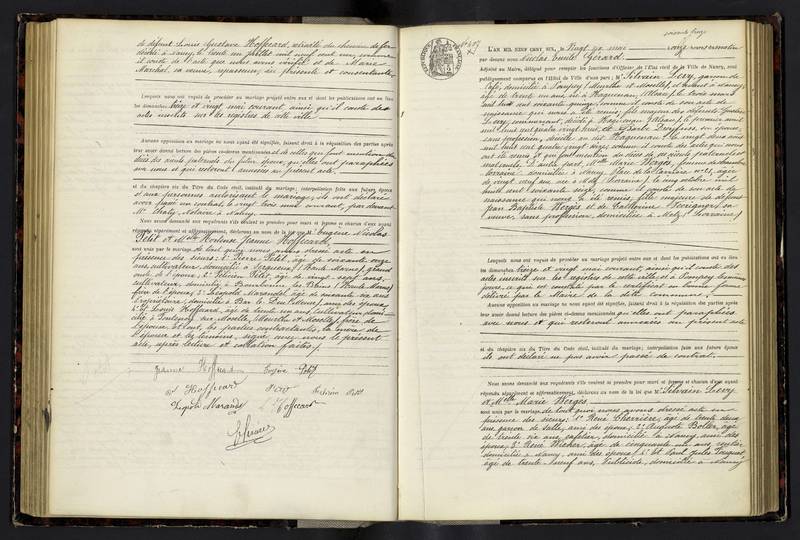 de défunt Louis Gustave Hoffcard, retraité du chemin de fer
décédé à Nancy, le trente un juillet mil neuf cent un, comme
il conste de l'acte que nous avons vérifié et de Marie
Marchal, sa veuve, repasseuse, ici présente et consentante,
Lesquels nous ont requis de procéder au mariage projeté entre eux et dont les publications ont eu lieu
les dimanches treize et vingt mai courant, ainsi qu'il conste des
actes inscrits sur les registres de cette ville
Aucune opposition au mariage ne nous ayant été signifiée, faisant droit à la réquisition des parties après
leur avoir donné lecture des pièces ci-dessus mentionnées et de celles qui font mention du
décès des aïeuls paternels du futur époux, qu'elles ont paraphées
avec nous et qui resteront annexées au présent acte,
et du chapitre six du Titre du Code civil, intitulé du mariage; interpellation faite aux futurs époux
et aux personnes autorisant le mariage, ils ont déclaré
avoir passé un contrat, le vingt trois mai courant, par devant
Me Notaire à Nancy
Nous avons demandé aux requérants s'ils veulent se prendre pour mari et femme et chacun d'eux ayant
répondu séparément et affirmativement, déclarons au nom de la loi que Mr Eugène Nicolas
Petit et Melle Hortense Jeanne Hoffcard,
sont unis par le mariage, de tout quoi nous avons dressé acte en
présence des sieurs: 1° Pierre Petit, âgé de soixante onze
ans, cultivateur, domicilié à Serqueux (Haute Marne), grand
oncle de l'époux; 2° Petit, âgé de vingt sept ans,
cultivateur, domicilié à Bourbonne les Bains (Haute Marne)
de l'époux; 3° Léopold Marande, âgé de ans
domicilié à Bar le Duc (Meuse), ami des époux;
4° et Léon Hoffcard, âgé de trente un ans, cultivateur, domi
cilié à sur Moselle, (Meurthe et Moselle), frère de
l'épouse. Et ont, les parties contractantes, la mère de
l'épouse et les témoins, signé avec nous le présent
acte, après lecture et collation faites./.
Jeanne Hoffcard Eugène Petit
Hoffcard Petit Petit
Léopold Marande L. Hoffcard
N° 407
L'AN MIL NEUF CENT SIX, le Vingt six mai onze heures du matin
par devant nous Nicolas Emile Gérard,
Adjoint au Maire, délégué pour remplir les fonctions d'Officier de l'Etat civil de la Ville de Nancy, sont
publiquement comparus en l'Hôtel de Ville d'une part: Mr Silvain Levy, garçon de
café, domicilié à Pompey (Meurthe et Moselle), et avant à Nancy,
âgé de trente un ans, né à Haguenau (Alsace), le trois avril
mil huit cent soixante quinze, comme il conste de son acte de
naissance qui nous a été remis, fils majeur des défunts
Levy, commerçant, décédé à Haguenau (Alsace), le premier avril
mil huit cent quatre vingt huit, et Dreyfuss, son épouse,
sans profession, décédée au dit Haguenau, le vingt deux avril
mil huit cent quatre vingt dix, comme il conste des actes qui nous
ont été remis et qui font mention du décès de ses aïeuls paternels et
maternels. D'autre part: Melle Marie Bergès, femme de chambre,
lorraine, domiciliée à Nancy, Place de la Carrière n° 21, âgée
de vingt neuf ans, née à Metz (Lorraine), le cinq octobre mil
huit cent soixante seize, comme il conste de son acte de
naissance qui nous a été remis, fille majeure de défunt
Jean Baptiste Bergès et de Catherine sa
veuve, sans profession, domiciliée à Metz (Lorraine)
Lesquels nous ont requis de procéder au mariage projeté entre eux et dont les publications ont eu lieu
les dimanches treize et vingt mai courant, ainsi qu'il conste des
actes inscrits sur les registres de cette ville et à Pompey les mêmes
jours, ce qui est constaté par le certificat en bonne forme
délivré par le Maire de la dite Commune.
Aucune opposition au mariage ne nous ayant été signifiée, faisant droit à la réquisition des parties après
leur avoir donné lecture des pièces ci-dessus mentionnées qu'elles ont paraphées
avec nous et qui resteront annexées au présent acte
et du chapitre six du Titre du Code civil, intitulé du mariage; interpellation faite aux futurs époux
ils ont déclaré ne pas avoir passé de contrat.
Nous avons demandé aux requérants s'ils veulent se prendre pour mari et femme et chacun d'eux ayant
répondu séparément et affirmativement, déclarons au nom de la loi que Mr Silvain Levy
et Melle Marie Bergès
sont unis par le mariage, de tout quoi nous avons dressé acte en
présence des sieurs: 1° René Cherrière, âgé de trente deux
ans, garçon de salle, ami des époux; 2° Auguste Botter, âgé
de trente six ans, cafetier, domicilié à Nancy, ami des
époux; 3° René Wicker, âgé de cinquante un ans,
domicilié à Nancy, ami des époux; 4° et Paul Jules
âgé de trente neuf ans, Publiciste, domicilié à Nancy